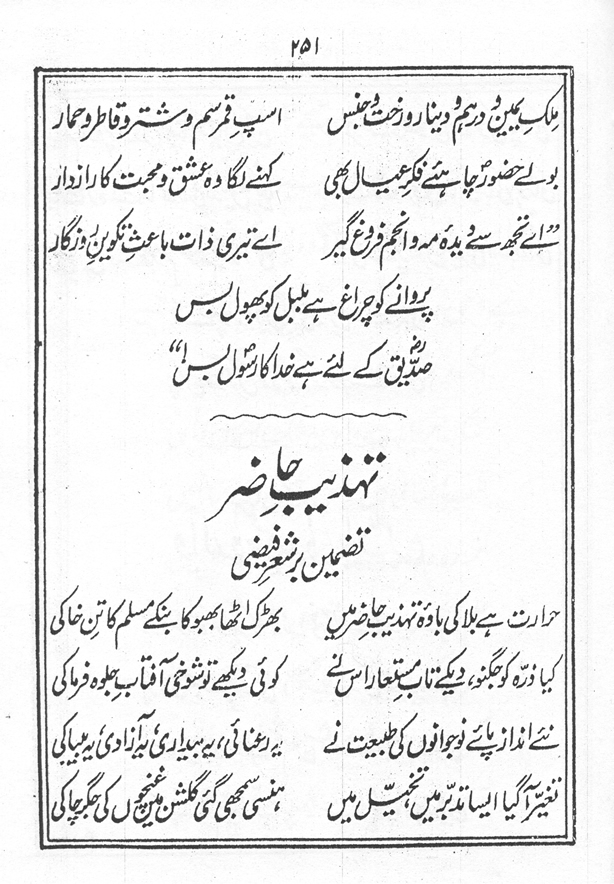 ۲۵۱
مِلکِ یمین و درہم و دینار و رخت و جنس اسپِ قمر سم و شتر و قاطر و حمار
بولے حضورؐ چاہئے فکرِ عیال بھی کہنے لگا وہ عشق و محبت کا رازدار
”اے تجھ سے دیدۂ مہ و انجم فروغ گیر اے تیری ذات باعثِ تکوینِ روزگار
پروانے کو چراغ ہے بلبل کو پھول بس
صدّیقؓ کے لئے ہے خدا کا رسولؐ بس!“
تہذیبِ حاضر
تضمین بر شعرِ فیضی
حرارت ہے بلا کی بادۂ تہذیبِ حاضر میں بھڑک اٹھا بھبوکا بنکے مسلم کا تنِ خاکی
کیا ذرّہ کو جگنو، دیکے تابِ مستعار اس نے کوئی دیکھے تو شوخی آفتابِ جلوہ فرما کی
نئے انداز پائے نوجوانوں کی طبیعت نے یہ رعنائی، یہ بیداری، یہ آزادی، یہ بیباکی
تغیّر آ گیا ایسا تدبّر میں، تخیّل میں ہنسی سمجھی گئی گلشن میں غنچوں کی جگر چاکی